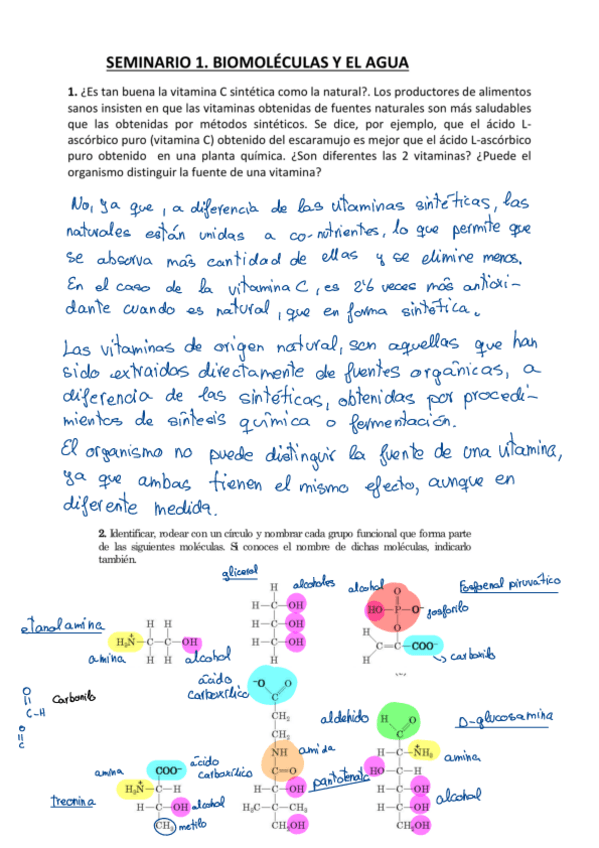 SEMINARIO 1. BIOMOLÉCULAS Y EL AGUA
1. ¿Es tan buena la vitamina C sintética como la natural?. Los productores de alimentos
sanos insisten en que las vitaminas obtenidas de fuentes naturales son más saludables
que las obtenidas por métodos sintéticos. Se dice, por ejemplo, que el ácido L-
ascórbico puro (vitamina C) obtenido del escaramujo es mejor que el ácido L-ascórbico
puro obtenido en una planta química. ¿Son diferentes las 2 vitaminas? ¿Puede el
organismo distinguir la fuente de una vitamina?
No, ya que, a diferencia de las vitaminas sintéticas, las
naturales están unidas a co-nutrientes, lo que permite que
se absorva más cantidad de ellas y se elimine menos.
En el caso de la vitamina C, es 2'6 veces más antioxi-
dante cuando es natural, que en forma sintética.
Las vitaminas de origen natural, son aquellas que han
sido extraidas directamente de fuentes orgánicas, a
diferencia de las sintéticas, obtenidas por procedi-
mientos de síntesis química o fermentación.
El organismo no puede distinguir la fuente de una vitamina,
ya que ambas tienen el mismo efecto, aunque en
diferente medida.
2. Identificar, rodear con un círculo y nombrar cada grupo funcional que forma parte
de las siguientes moléculas. Si conoces el nombre de dichas moléculas, indicarlo
también.
glicerol
alcoholes
alcohol
Fosfoenol piruvático
H
H—C—OH
H—C—OH
H—C—OH
H
O
HO—P—O⁻
O
fosforilo
H
C=C—COO⁻
H
carbonilo
etanolamina
H H
H₃N⁺—C—C—OH
H H
amina
alcohol
ácido
carboxílico
⁻O O
C
CH₂
CH₂
NH
C=O
H—C—OH
H₃C—C—CH₃
CH₂OH
amida
pantotenato
O
C-H
Carbonilo
O
C
amina
COO⁻
ácido
carboxílico
H₃N⁺—C—H
H—C—OH
alcohol
CH₃
metilo
treonina
aldehido
H O
C
D-glucosamina
H—C—NH₃⁺
amina
HO—C—H
H—C—OH
H—C—OH
alcohol
CH₂OH